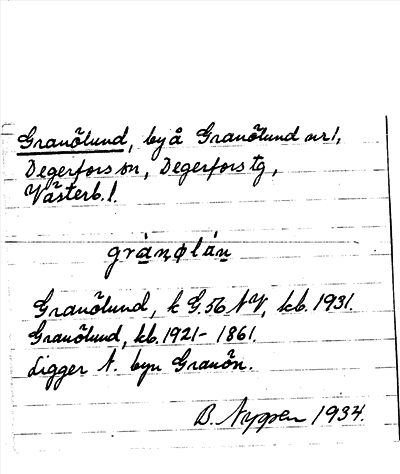 Granölund, by å Granölund nr 1,
Degerfors sn, Degerfors tg,
Västerb. l.
grànølán
Granölund, k G.56 NV, kb. 1931.
Granölund, kb. 1921 - 1861.
Ligger N. byn Granön.
B. Nygren 1934.